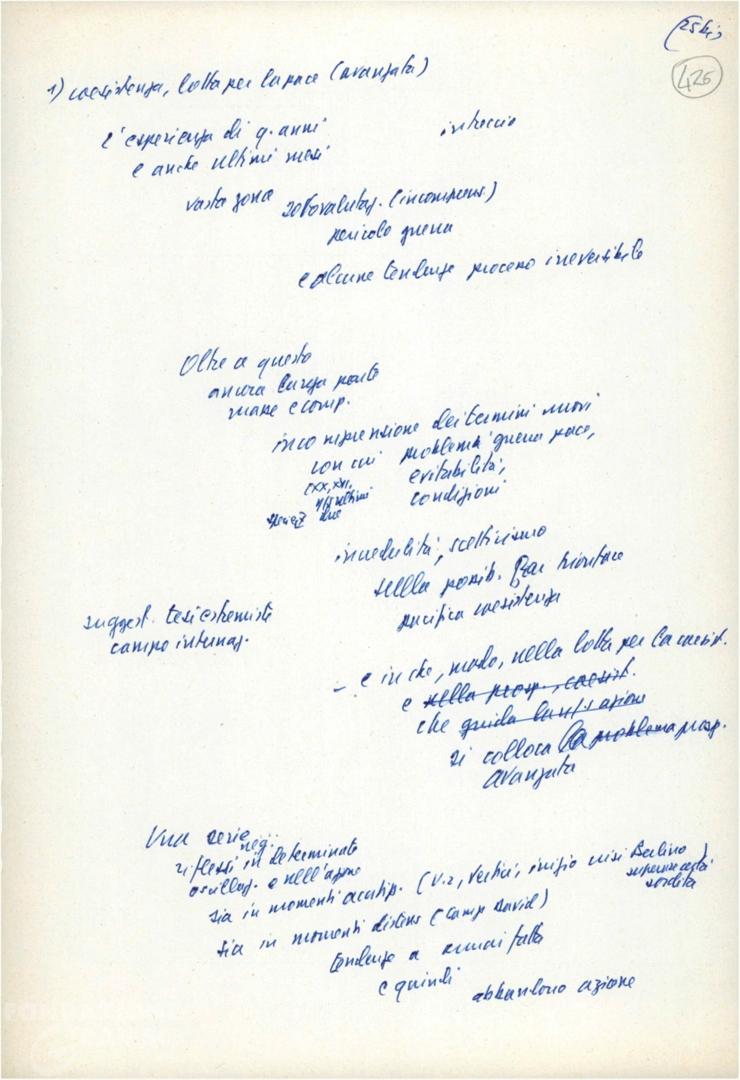 425
1) coesistenza, lotta per la pace (avanzata)
l'esperienza di q. anni intreccio
e anche ultimi mesi
vasta zona sottovalutaz. (incomprens)
pericolo guerra
e alcune tendenze processo irreversibile
Oltre a questo
ancora larga parte
masse e comp.
incomprensione dei termini nuovi
con cui problema guerra pace,
(XX, XXI, evitabilità,
ultimi condizioni
due
incredulità, scetticismo
sulla possib. far trionfare
pacifica coesistenza
suggest. tesi estremiste
campo internaz.
– e in che, modo, nella lotta per la coesist.
e nella prosp. coesist.
che guida azione
si colloca la problema prosp.
avanzata
Una serie neg.
riflessi in determinate
oscillaz. e nell'azione
sia in momenti acutiz. (U.2, Vertici, inizio crisi Berlino)
certa
sordità
sia in momenti distens (Camp David)
tendenze a ormai fatta
e quindi abbandono azione